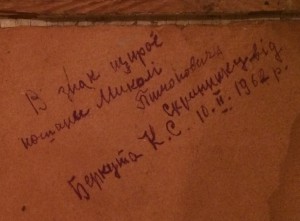 В знак щирої
пошани Миколі
Тимоновича
Скрипнику від
Беркута К.С. 10.II.1962 р.